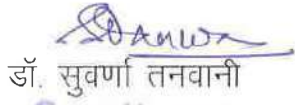 डॉ. सुवर्णा तनवानी